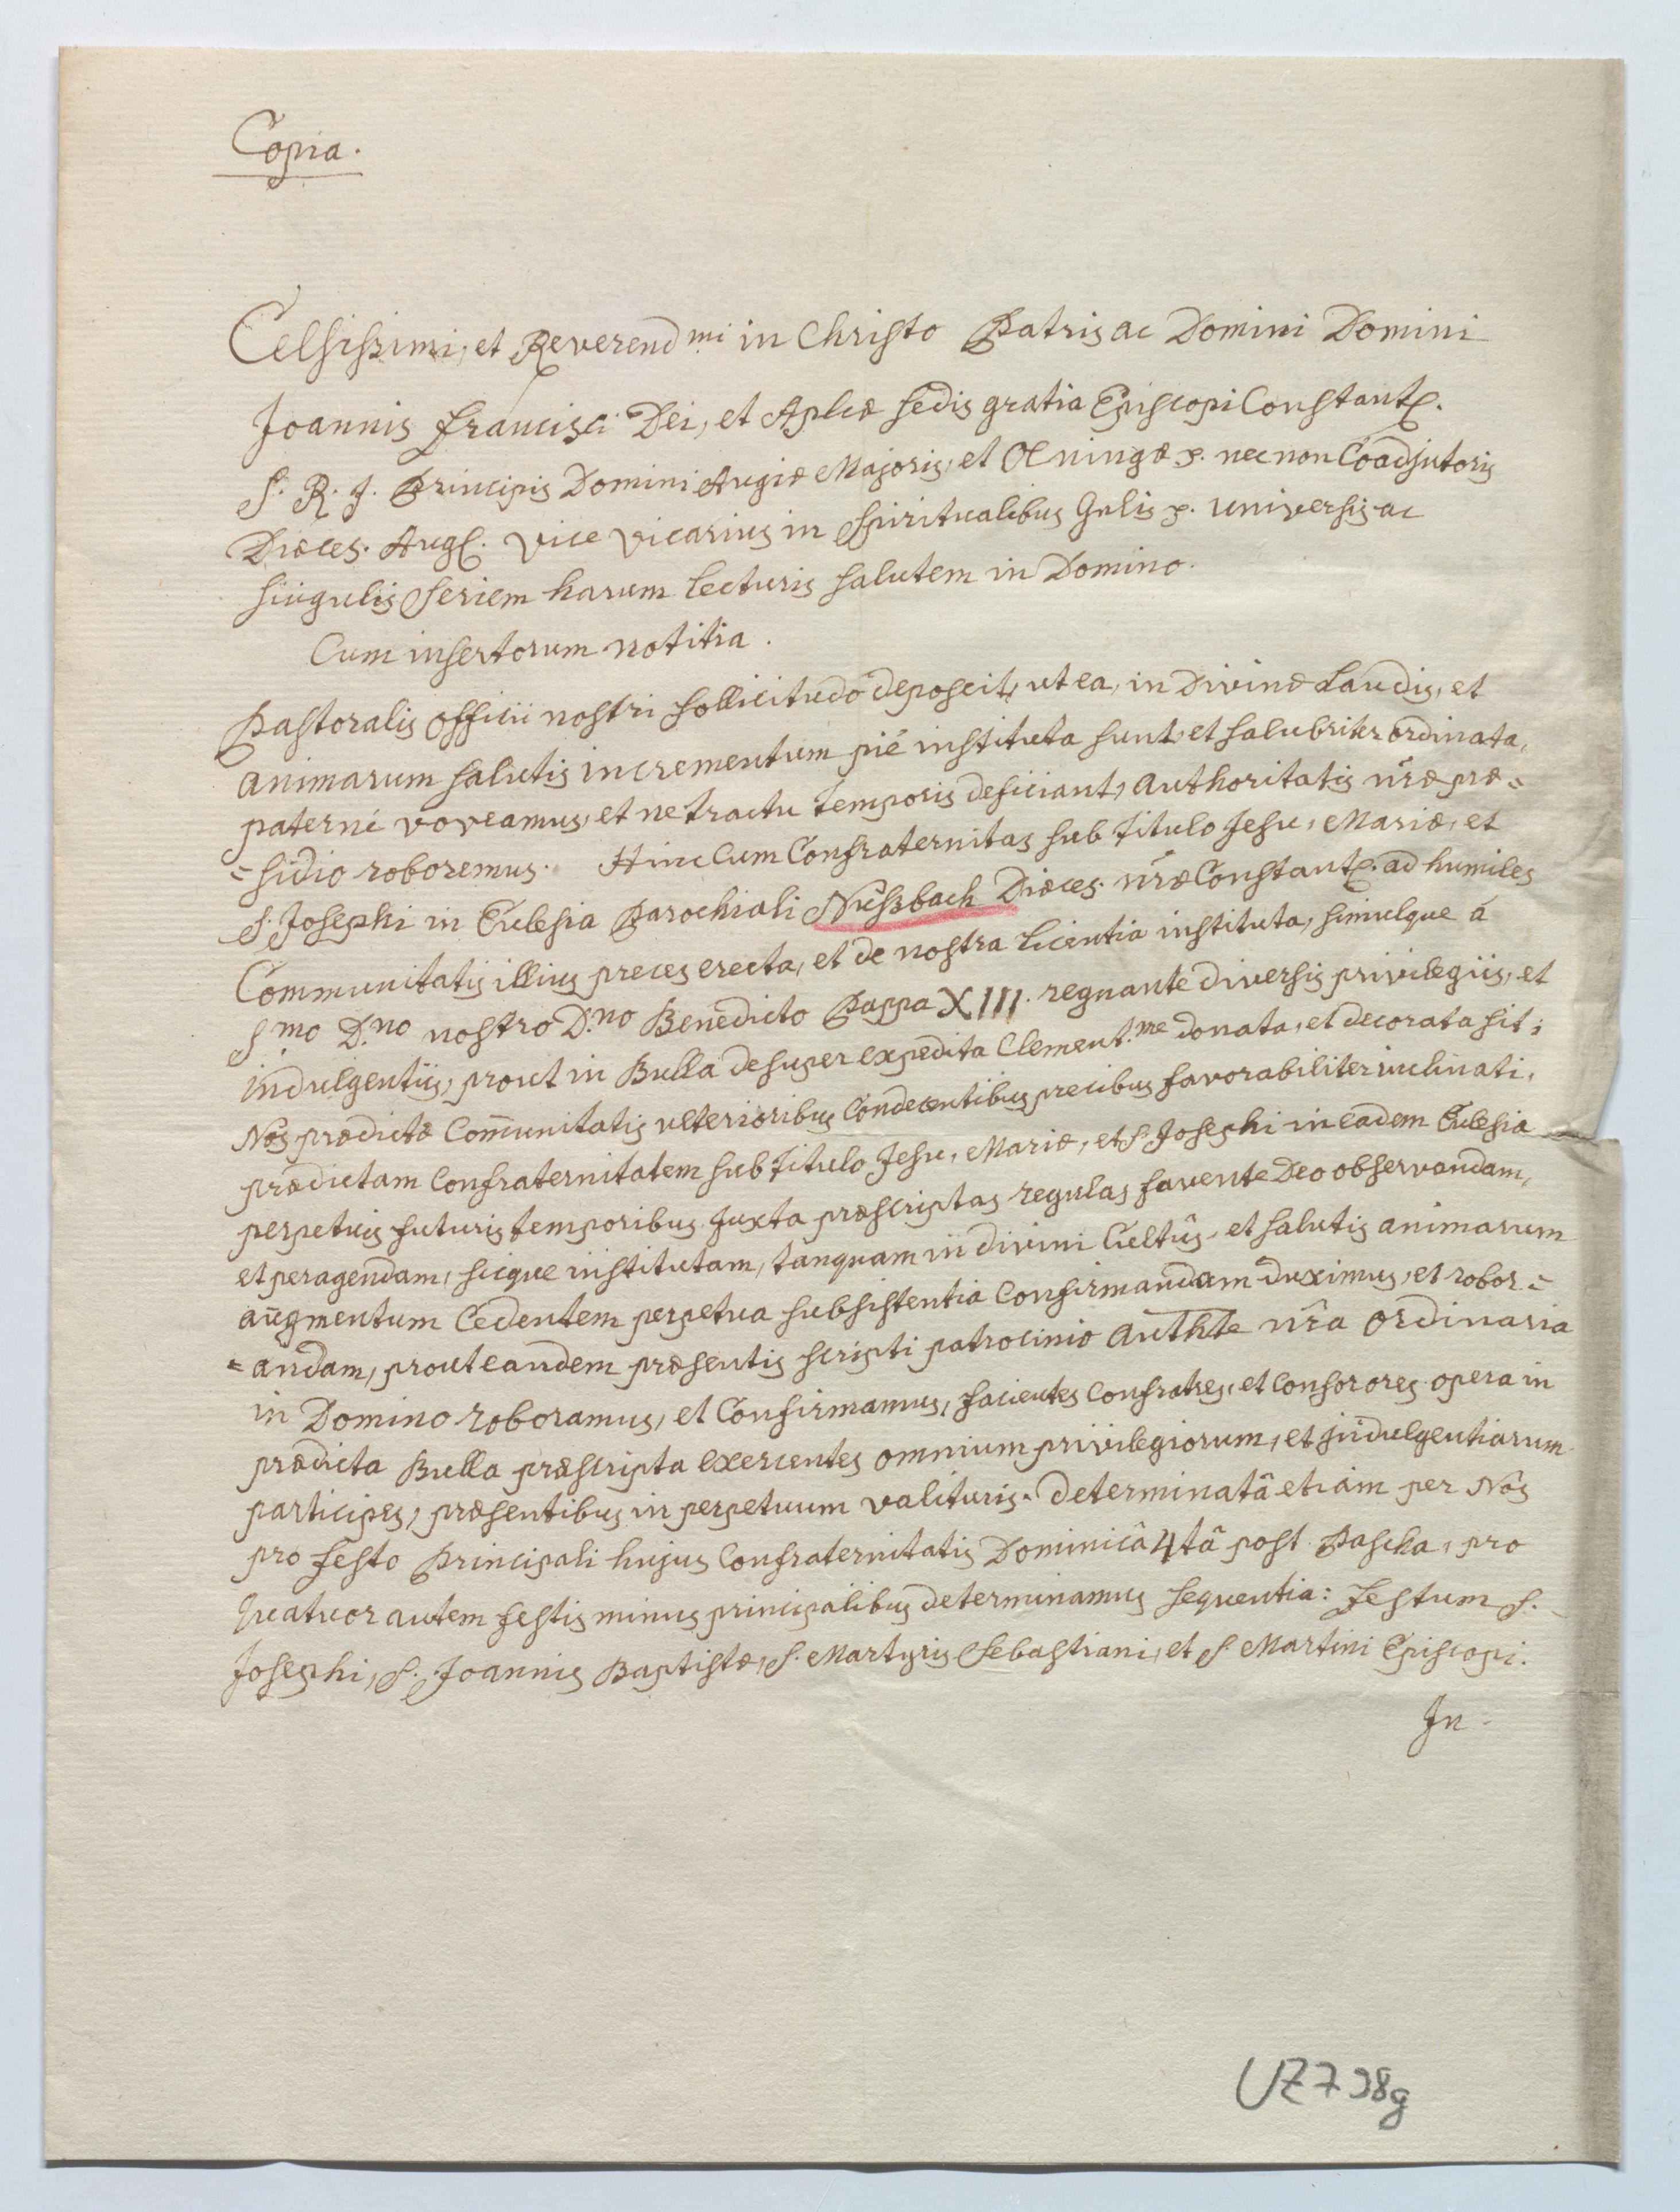 Copia.
Celsissimi, et Reverend mi in Christo Patris ac Domini Domini
Joannis Francisci Dei, et Aplicæ sedis gratia Episcopi Constant.
S. R. J. Principis Domini Augiæ Majoris, et Oeningæ p. necnon Coadjutoris
Diœces. Aug. Vice Vicarius in Spiritualibus Gnlis p. universis ac
singulis seriem harum lecturis salutem in Domino.
Cum insertorum notitia.
Pastoralis officii nostri sollicitudo deposcit, ut ea, in Divinæ Laudis, et
animarum salutis incrementum pié instituta sunt, et salubriter ordinata,
paterné voveamus, et ne tractu temporis deficiant, authoritatis nræ præ=
=sidio roboremus. Hinc Cum Confraternitas sub Titulo Jesu, Mariæ, et
S. Josephi in Ecclesia Parochiali Nußbach Diœces. nræ Constant. ad humiles
Communitatis illius preces erecta, et de nostra licentia instituta, simulque á
Smo D.no nostro D.no Benedicto Pappa XIII. regnante diversis privilegiis, et
indulgentiis, prout in Bulla desuper expedita Clement.me donata, et decorata sit;
Nos prædictæ Com̄unitatis ulterioribus Condecentibus precibus favorabiliter inclinati,
prædictam Confraternitatem sub Titulo Jesu, Mariæ, et S. Josephi in eadem Ecclesia
perpetuis futuris temporibus juxta præscriptas regulas favente Deo observandam,
et peragendam, sicque institutam, tanquam in divini Cultûs, et salutis animarum
augmentum Cedentem perpetua subsistentia Confirmandam duximus, et robor=
=andam, prout eandem præsentis scripti patrocinio authte nr̃a ordinaria
in Domino roboramus, et Confirmamus, facientes Confratres, et Consorores opera in
prædicta Bulla præscripta exercentes omnium privilegiorum, et indulgentiarum
participes, præsentibus in perpetuum valituris. Determinatâ etiam per Nos
pro festo Principali hujus Confraternitatis Dominicâ 4tâ post Pascha, pro
quatuor autem festis minus principalibus determinamus sequentia: Festum S.
Josephi, S. Joannis Baptistæ, S. Martyris Sebastiani, et S Martini Episcopi.
In
UZ798g